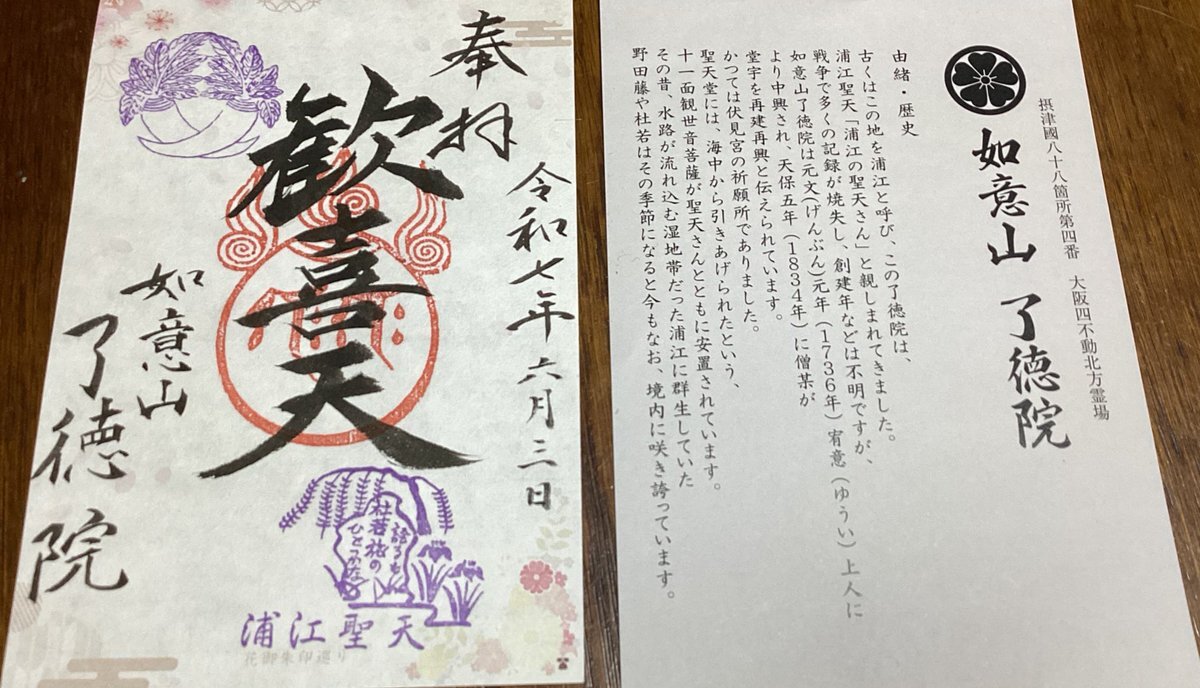 奉拝
歓喜天
令和七年六月三日
如意山
了徳院
語るも
杜若旅の
ひとつかな
浦江聖天
花御朱印巡り
摂津國八十八箇所第四番　大阪四不動北方霊場
如意山　了徳院
由緒・歴史
古くはこの地を浦江と呼び、この了徳院は、
浦江聖天「浦江の聖天さん」と親しまれてきました。
戦争で多くの記録が焼失し、創建年などは不明ですが、
如意山了徳院は元文(げんぶん)元年(1736年)宥意(ゆうい)上人に
より中興され、天保五年(1834年)に僧某が
堂宇を再建再興と伝えられています。
かつては伏見宮の祈願所でありました。
聖天堂には、海中から引きあげられたという、
十一面観世音菩薩が聖天さんとともに安置されています。
その昔、水路が流れ込む湿地帯だった浦江に群生していた
野田藤や杜若はその季節になると今もなお、境内に咲き誇っています。